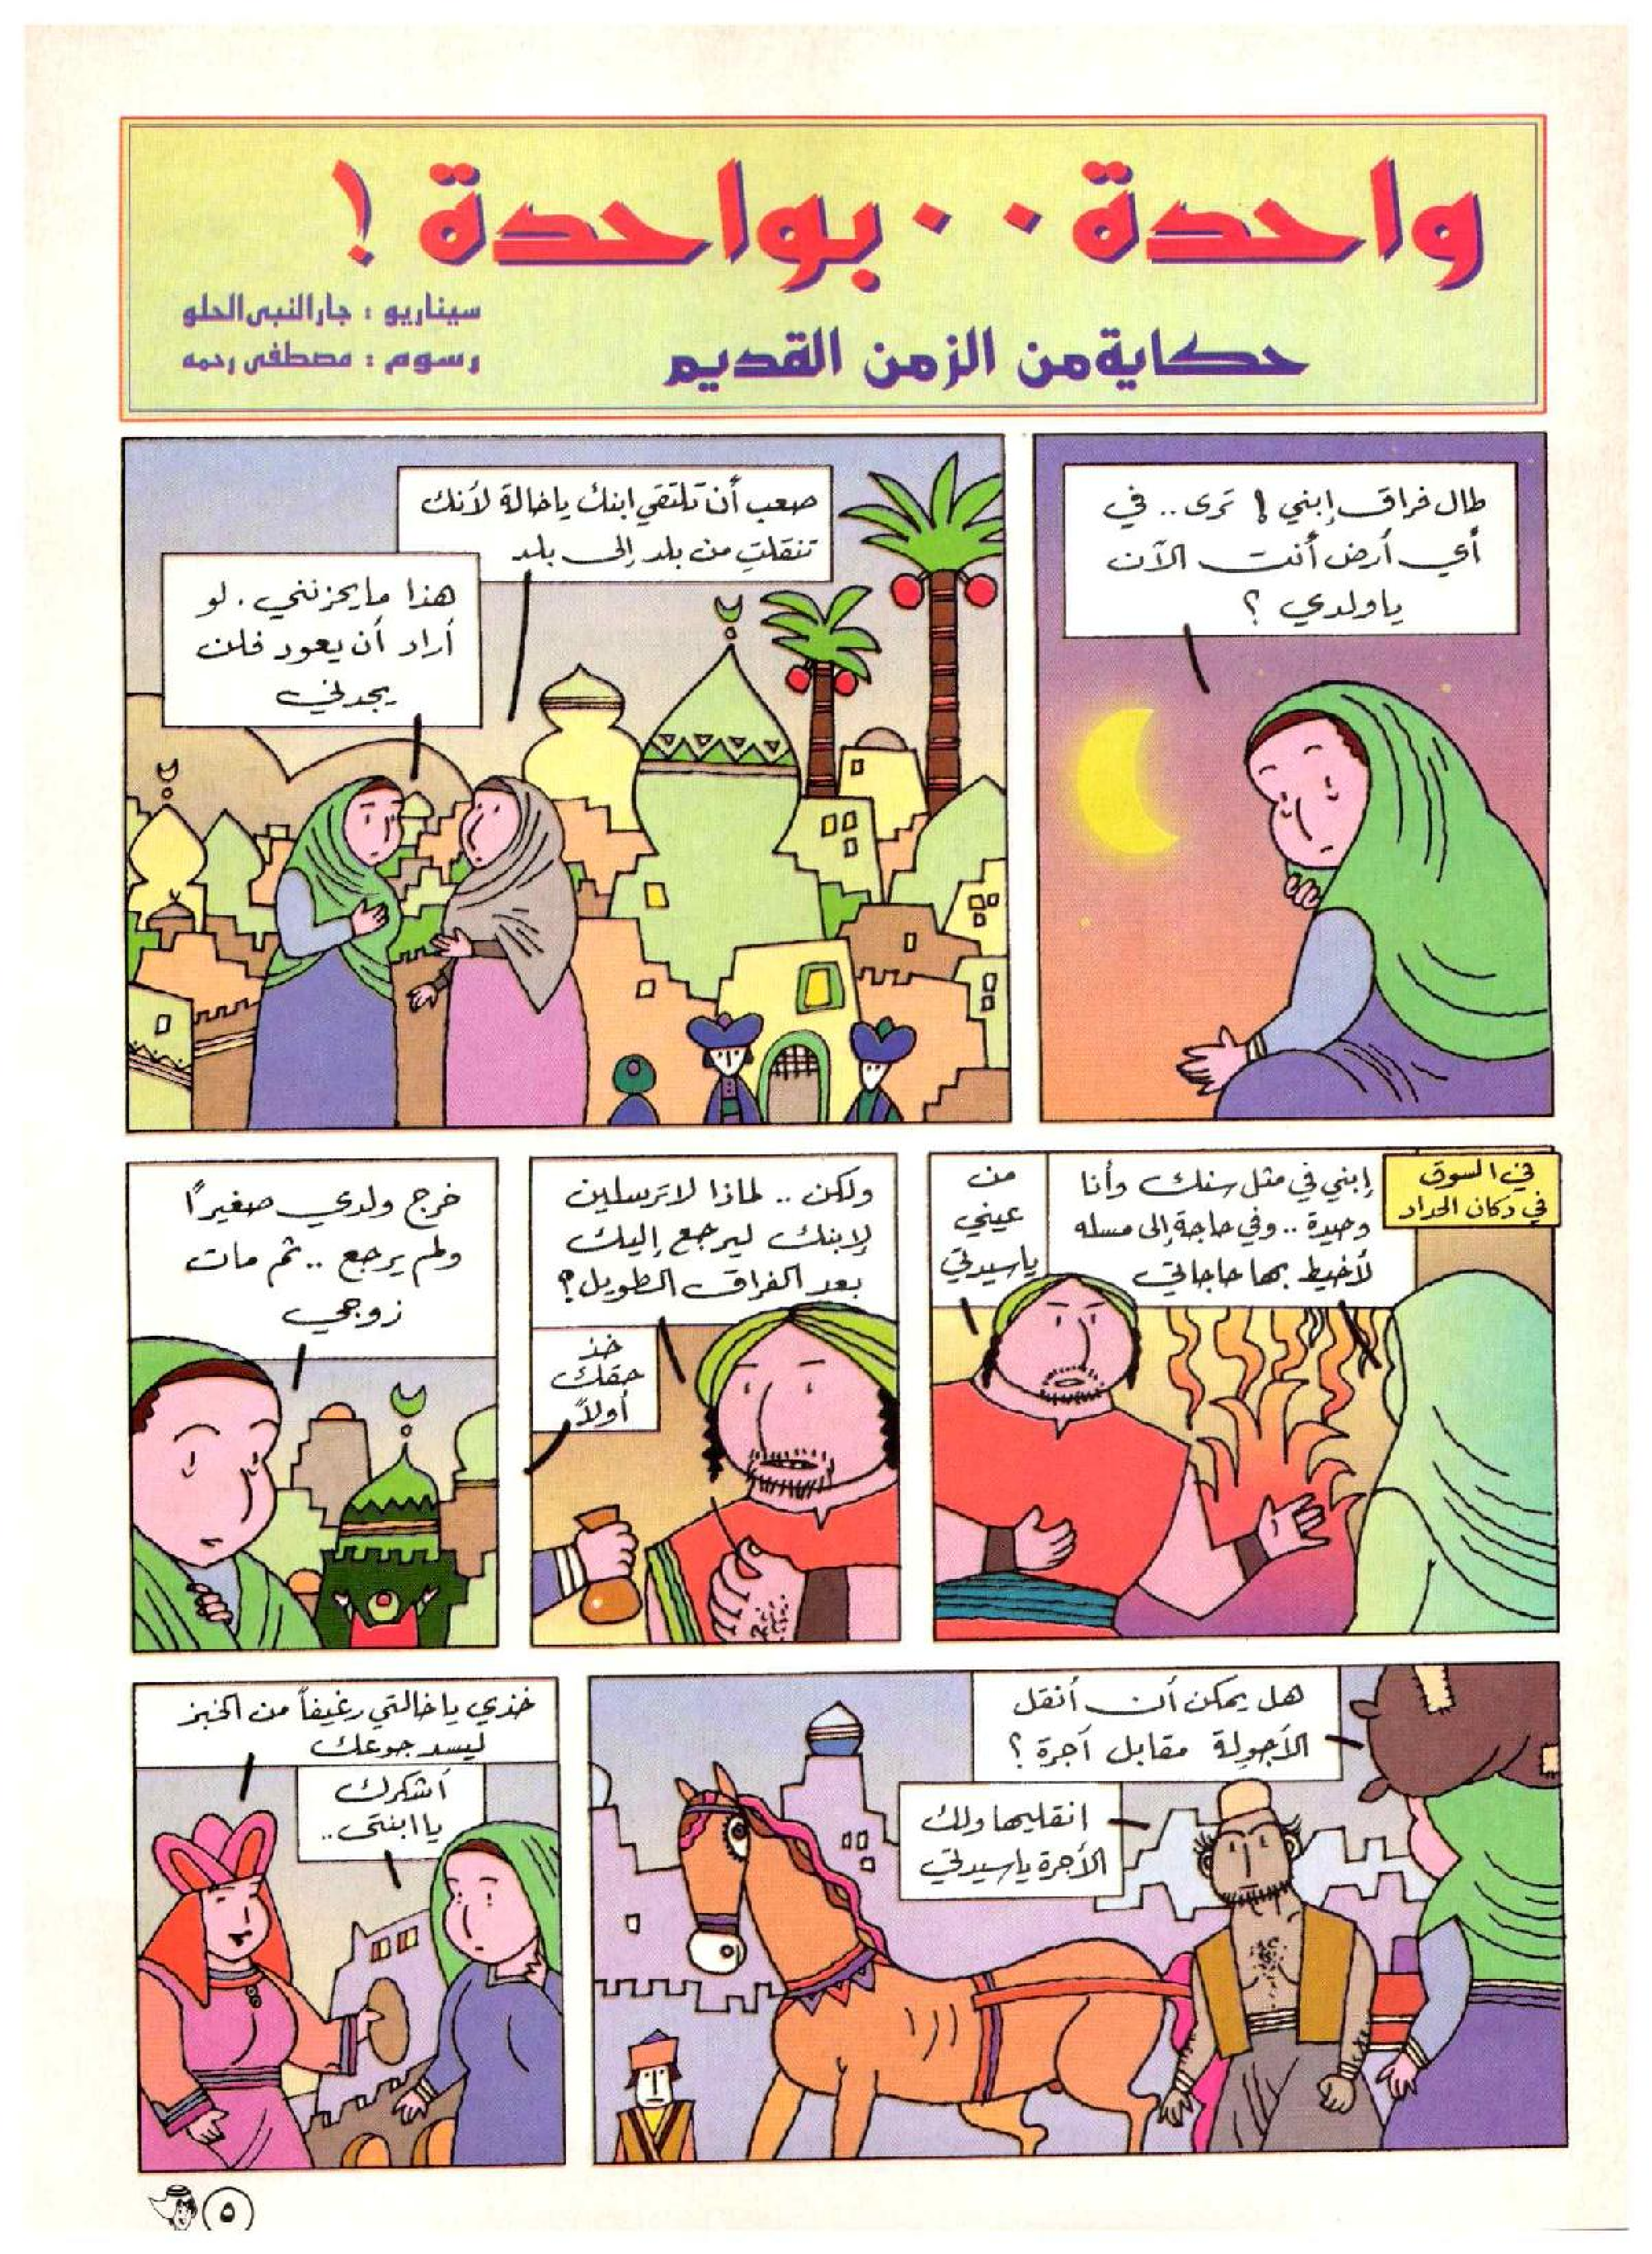 واحدة .. بواحدة !
حكاية من الزمن القديم
سيناريو : جار النبى الحلو
رسوم : مصطفى رحمه
طال فراق إبني ! تُرى .. في
أي أرض أنت الآن
يا ولدي ؟
صعب أن تلتقي ابنك يا خالة لأنك
تنقلتِ من بلد إلى بلد
هذا ما يحزنني . لو
أراد أن يعود فلن
يجدني
في السوق
في دكان الحداد
إبني في مثل سنك وأنا
وحيدة .. وفي حاجة إلى مسله
لأخيط بها حاجاتي
من
عيني
يا سيدتي
ولكن .. لماذا لا ترسلين
لإبنك ليرجع إليك
بعد الفراق الطويل ؟
خذ
حقك
أولاً
خرج ولدي صغيراً
ولم يرجع .. ثم مات
زوجي
هل يمكن أن أنقل
الأجولة مقابل أجرة ؟
انقليها ولك
الأجرة يا سيدتي
خذي يا خالتي رغيفاً من الخبز
ليسد جوعك
أشكرك
يا ابنتى ..
٥